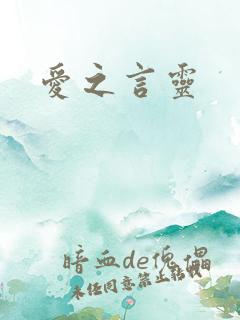 愛之言靈
暗血de傀儡
未任同意禁止轉載